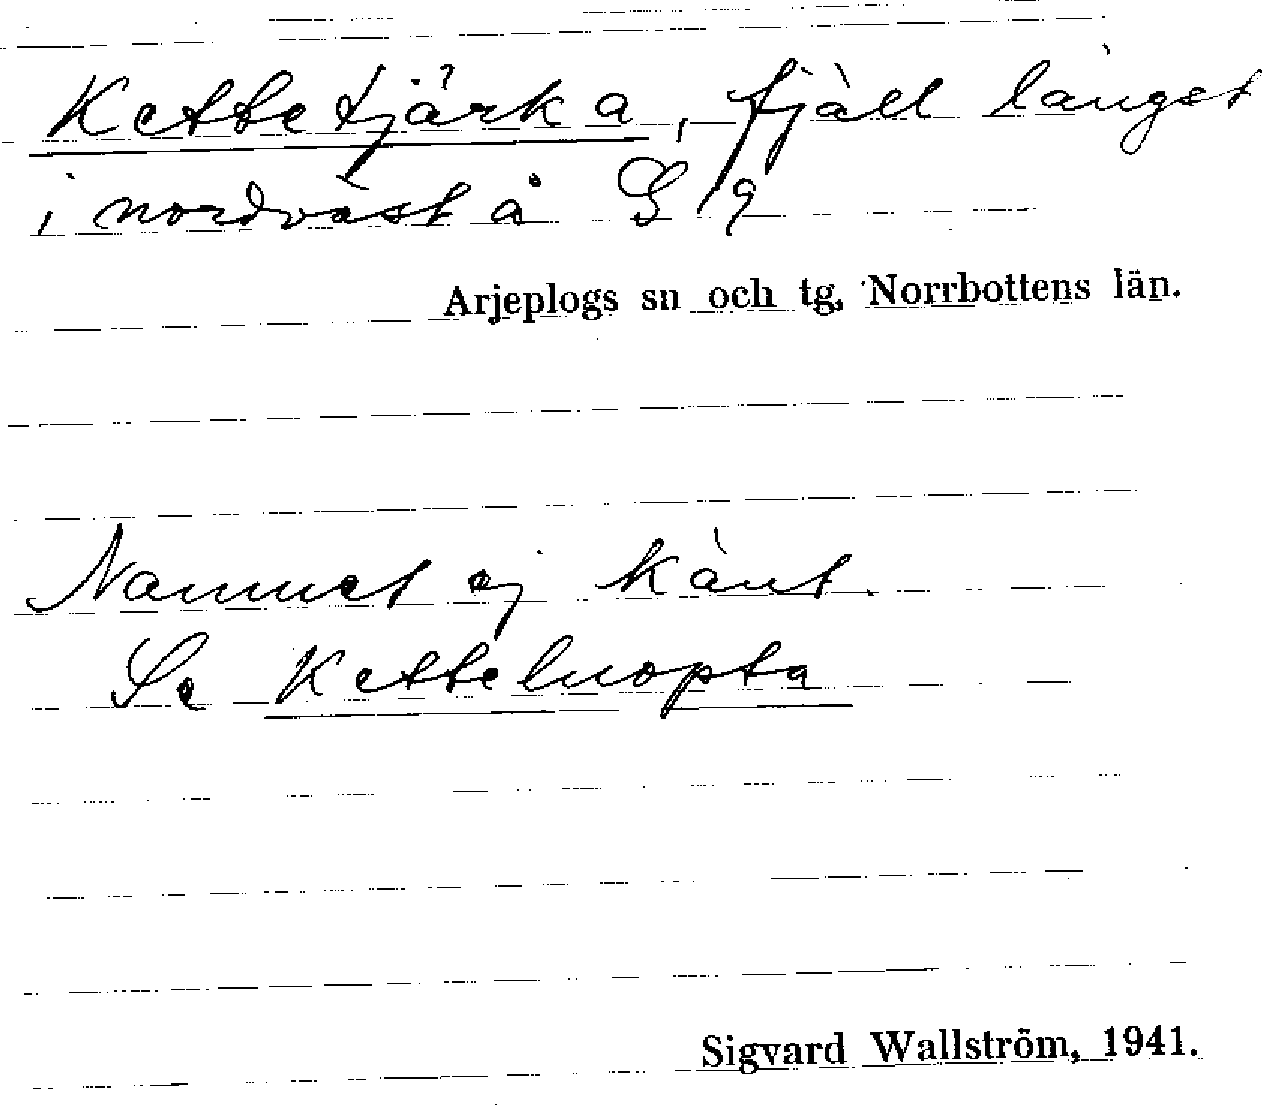 Kettetjärka, fjäll längst
i nordväst å S 19
Arjeplogs sn och tg, Norrbottens län.
Namnet ej känt.
Se Ketteluopta
Sigvard Wallström, 1941.